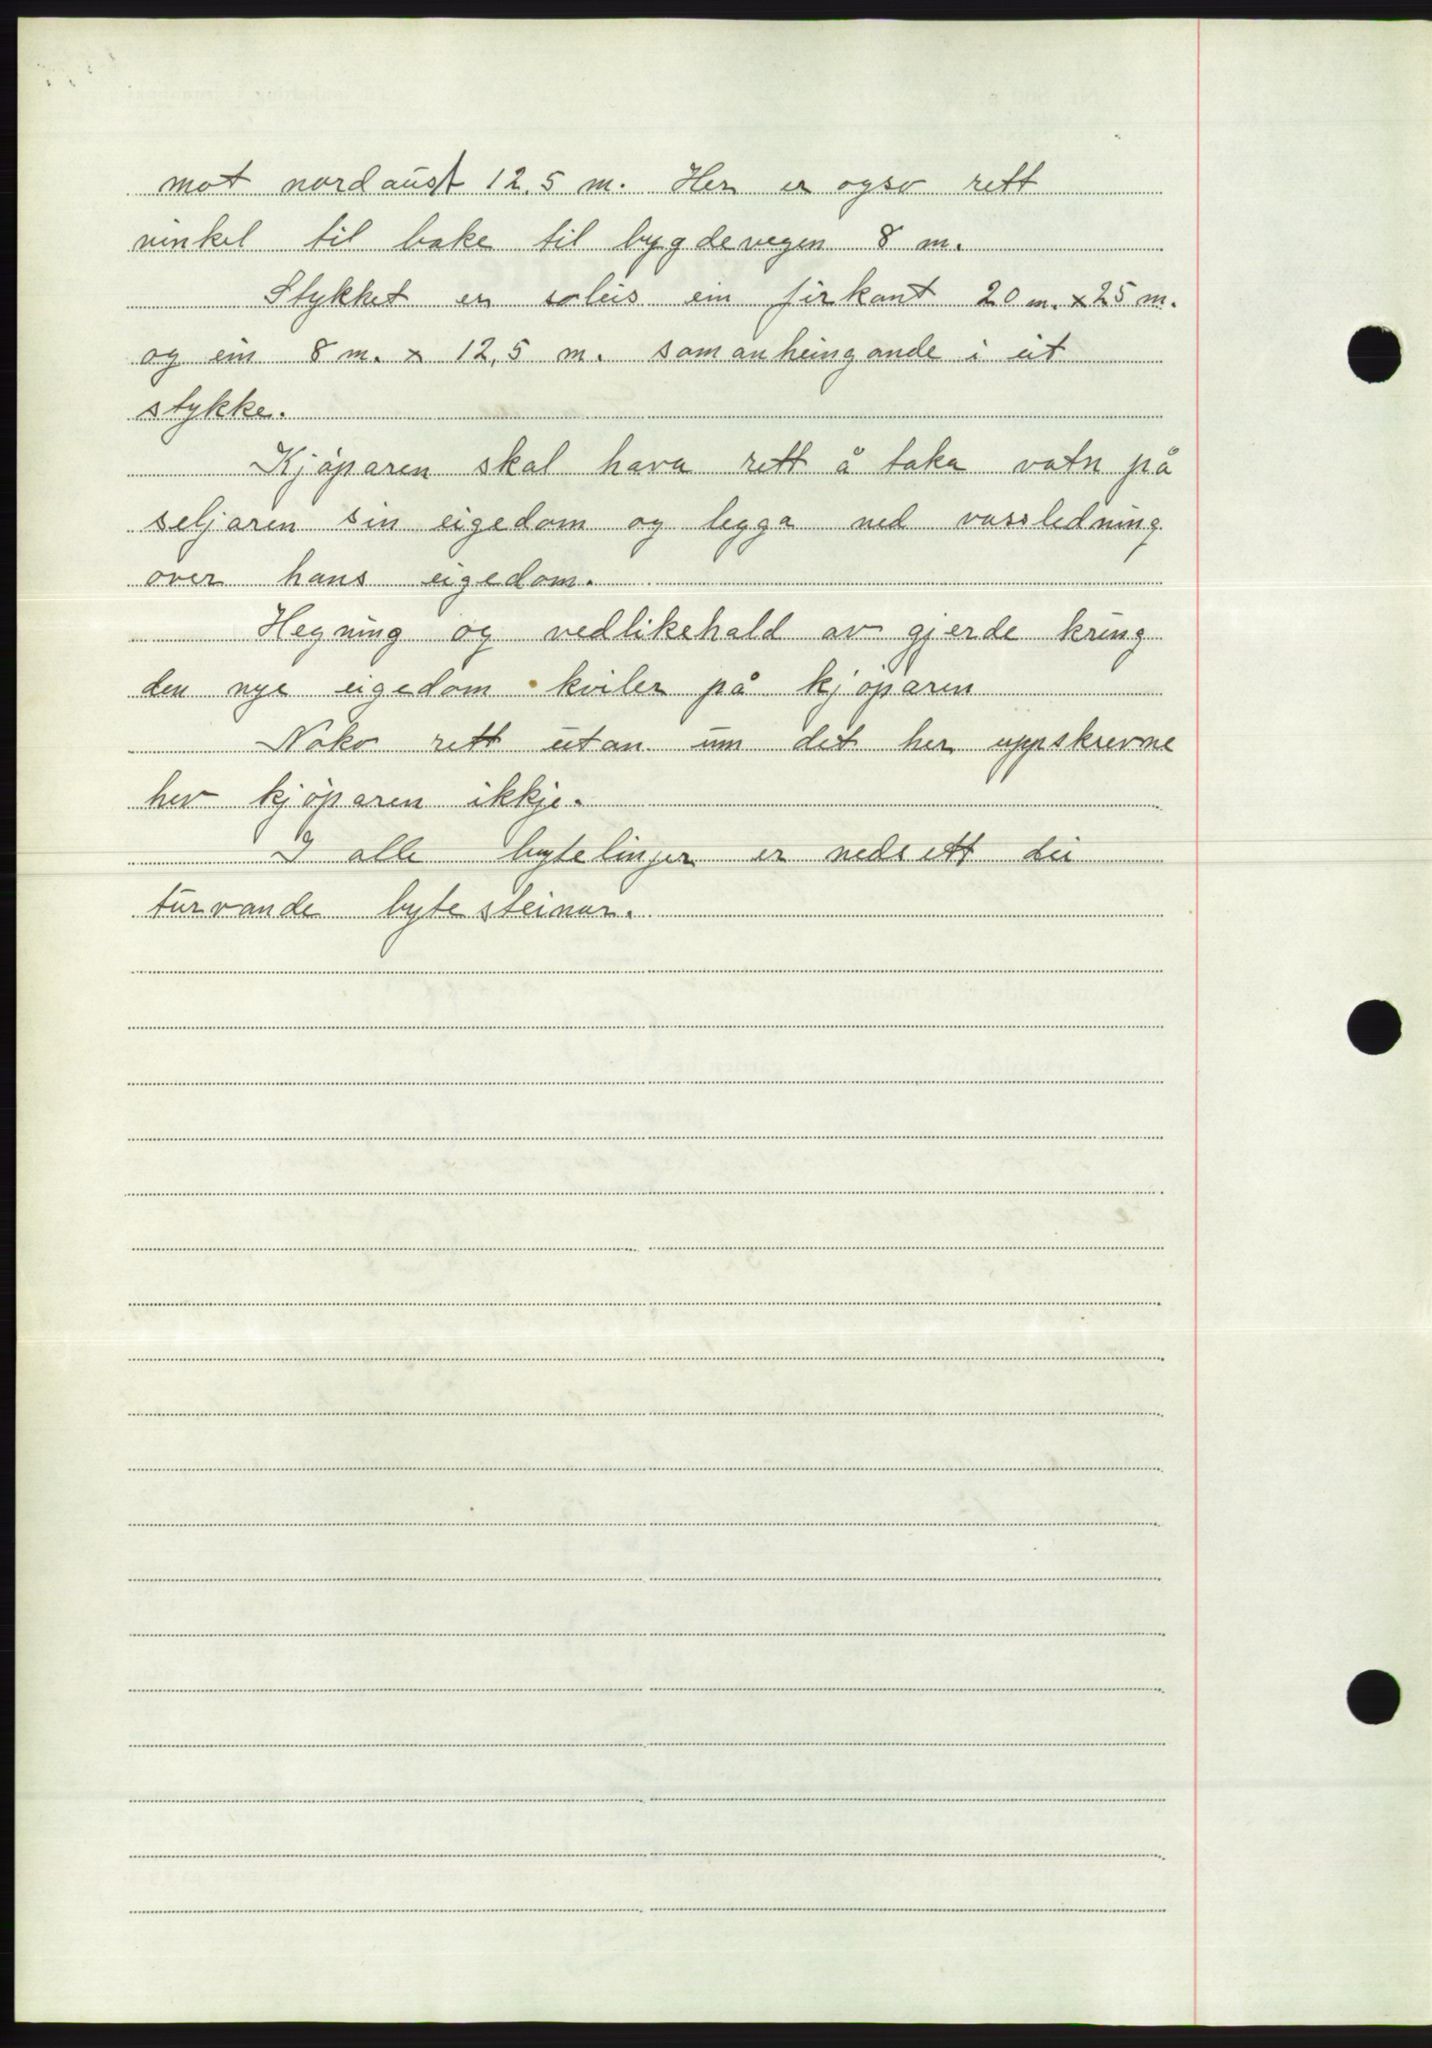 mot nordaust 12.5 m. Her er ogso rett
vinkel til bake til bygdevegen 8 m.
Stykket er soleis ein firkant 20 m. x 25 m.
og ein 8 m. x 12,5 m. samanheingande i eit
stykke.
Kjøparen skal hava rett å taka vatn på
seljaren sin eigedom og legga ned vassledning
over hans eigedom.
Hegning og vedlikehald av gjerde kring
den nye eigedom kviler på kjøparen
Noko rett utan um det her uppskrevne
hev kjøparen ikkje.
I alle bytelinjer er nedsett dei
turvande bytesteinar.